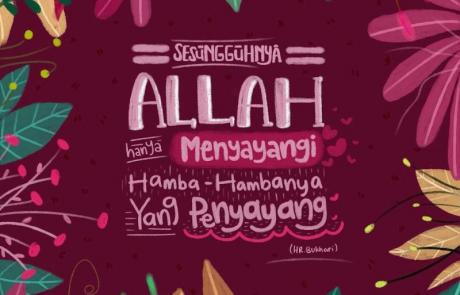 SESŪNGGŪHNYĀ
ALLAH
hānyā Menyayangi
Hamba-Hambanya
Yang Penyayang
(HR. Bukhari)